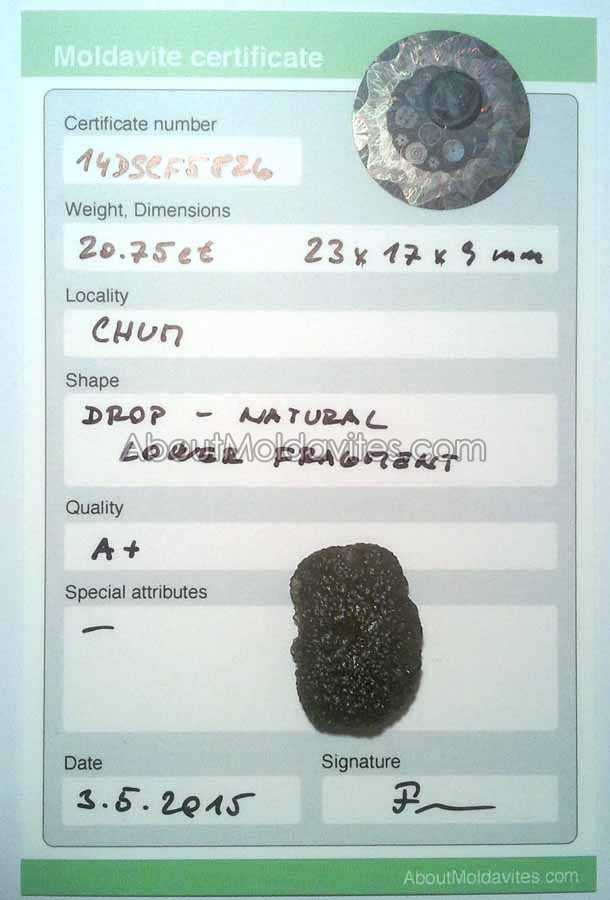 Moldavite certificate
Certificate number
14DSCF5826
Weight, Dimensions
20.75ct 23 x 17 x 9 mm
Locality
CHUM
Shape
DROP - NATURAL
LOWER FRAGMENT
AboutMoldavites.com
Quality
A+
Special attributes
—
Date Signature
3.5.2015
AboutMoldavites.com